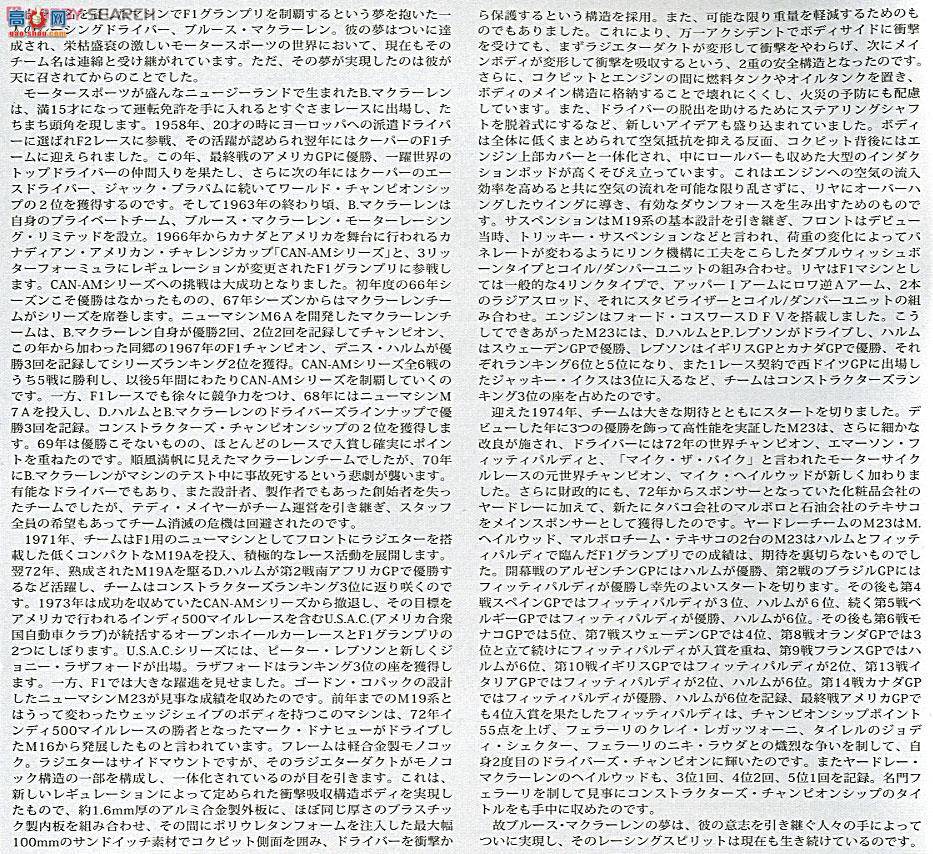 HOBBY SEARCH
ンでF1グランプリを制覇するという夢を抱いた一
ーシングドライバー、ブルース・マクラーレン。彼の夢はついに達
成され、栄枯盛衰の激しいモータースポーツの世界において、現在もその
チーム名は連綿と受け継がれています。ただ、その夢が実現したのは彼が
天に召されてからのことでした。
モータースポーツが盛んなニュージーランドで生まれたB.マクラーレン
は、満15才になって運転免許を手に入れるとすぐさまレースに出場し、た
ちまち頭角を現します。1958年、20才の時にヨーロッパへの派遣ドライバー
に選ばれF2レースに参戦、その活躍が認められ翌年にはクーパーのF1チ
ームに迎えられました。この年、最終戦のアメリカGPに優勝、一躍世界の
トップドライバーの仲間入りを果たし、さらに次の年にはクーパーのエー
スドライバー、ジャック・ブラバムに続いてワールド・チャンピオンシッ
プの２位を獲得するのです。そして1963年の終わり頃、B.マクラーレンは
自身のプライベートチーム、ブルース・マクラーレン・モーターレーシン
グ・リミテッドを設立。1966年からカナダとアメリカを舞台に行われるカ
ナディアン・アメリカン・チャレンジカップ「CAN-AMシリーズ」と、3リッ
ターフォーミュラにレギュレーションが変更されたF1グランプリに参戦し
ます。CAN-AMシリーズへの挑戦は大成功となりました。初年度の66年シ
ーズンこそ優勝はなかったものの、67年シーズンからはマクラーレンチー
ムがシリーズを席巻します。ニューマシンM６Aを開発したマクラーレンチ
ームは、B.マクラーレン自身が優勝2回、2位2回を記録してチャンピオン、
この年から加わった同郷の1967年のF1チャンピオン、デニス・ハルムが優
勝3回を記録してシリーズランキング2位を獲得。CAN-AMシリーズ全6戦の
うち5戦に勝利し、以後5年間にわたりCAN-AMシリーズを制覇していくの
です。一方、F1レースでも徐々に競争力をつけ、68年にはニューマシンM
７Aを投入し、D.ハルムとB.マクラーレンのドライバーズラインナップで優
勝3回を記録。コンストラクターズ・チャンピオンシップの２位を獲得しま
す。69年は優勝こそないものの、ほとんどのレースで入賞し確実にポイン
トを重ねたのです。順風満帆に見えたマクラーレンチームでしたが、70年
にB.マクラーレンがマシンのテスト中に事故死するという悲劇が襲います。
有能なドライバーでもあり、また設計者、製作者でもあった創始者を失っ
たチームでしたが、テディ・メイヤーがチーム運営を引き継ぎ、スタッフ
全員の希望もあってチーム消滅の危機は回避されたのです。
1971年、チームはF1用のニューマシンとしてフロントにラジエターを搭
載した低くコンパクトなM19Aを投入、積極的なレース活動を展開します。
翌72年、熟成されたM19Aを駆るD.ハルムが第2戦南アフリカGPで優勝す
るなど活躍し、チームはコンストラクターズランキング3位に返り咲くので
す。1973年は成功を収めていたCAN-AMシリーズから撤退し、その目標を
アメリカで行われるインディ500マイルレースを含むU.S.A.C.(アメリカ合衆
国自動車クラブ)が統括するオープンホイールカーレースとF1グランプリの
2つにしぼります。U.S.A.C.シリーズには、ピーター・レブソンと新しくジ
ョニー・ラザフォードが出場。ラザフォードはランキング3位の座を獲得し
ます。一方、F1では大きな躍進を見せました。ゴードン・コパックの設計
したニューマシンM23が見事な成績を収めたのです。前年までのM19系と
はうって変わったウェッジシェイプのボディを持つこのマシンは、72年イ
ンディ500マイルレースの勝者となったマーク・ドナヒューがドライブし
たM16から発展したものと言われています。フレームは軽合金製モノコッ
ク。ラジエターはサイドマウントですが、そのラジエターダクトがモノコ
ック構造の一部を構成し、一体化されているのが目を引きます。これは、
新しいレギュレーションによって定められた衝撃吸収構造ボディを実現し
たもので、約1.6mm厚のアルミ合金製外板に、ほぼ同じ厚さのプラスチッ
ク製内板を組み合わせ、その間にポリウレタンフォームを注入した最大幅
100mmのサンドイッチ素材でコクピット側面を囲み、ドライバーを衝撃か
ら保護するという構造を採用。また、可能な限り重量を軽減するためのも
のでもありました。これにより、万一アクシデントでボディサイドに衝撃
を受けても、まずラジエターダクトが変形して衝撃をやわらげ、次にメイ
ンボディが変形して衝撃を吸収するという、2重の安全構造となったのです。
さらに、コクピットとエンジンの間に燃料タンクやオイルタンクを置き、
ボディのメイン構造に格納することで壊れにくくし、火災の予防にも配慮
しています。また、ドライバーの脱出を助けるためにステアリングシャフ
トを脱着式にするなど、新しいアイデアも盛り込まれていました。ボディ
は全体に低くまとめられて空気抵抗を抑える反面、コクピット背後にはエ
ンジン上部カバーと一体化され、中にロールバーも収めた大型のインダク
ションポッドが高くそびえ立っています。これはエンジンへの空気の流入
効率を高めると共に空気の流れを可能な限り乱さずに、リヤにオーバーハ
ングしたウイングに導き、有効なダウンフォースを生み出すためのもので
す。サスペンションはM19系の基本設計を引き継ぎ、フロントはデビュー
当時、トリッキー・サスペンションなどと言われ、荷重の変化によってバ
ネレートが変わるようにリンク機構に工夫をこらしたダブルウィッシュボ
ーンタイプとコイル/ダンパーユニットの組み合わせ。リヤはF1マシンとし
ては一般的な4リンクタイプで、アッパーＩアームにロワ逆Ａアーム、2本
のラジアスロッド、それにスタビライザーとコイル/ダンパーユニットの組
み合わせ。エンジンはフォード・コスワースＤＦＶを搭載しました。こう
してできあがったM23には、D.ハルムとP.レブソンがドライブし、ハルム
はスウェーデンGPで優勝、レブソンはイギリスGPとカナダGPで優勝、それ
ぞれランキング6位と5位になり、また1レース契約で西ドイツGPに出場し
たジャッキー・イクスは3位に入るなど、チームはコンストラクターズラン
キング3位の座を占めたのです。
迎えた1974年、チームは大きな期待とともにスタートを切りました。デ
ビューした年に3つの優勝を飾って高性能を実証したM23は、さらに細かな
改良が施され、ドライバーには72年の世界チャンピオン、エマーソン・フ
ィッティパルディと、「マイク・ザ・バイク」と言われたモーターサイク
ルレースの元世界チャンピオン、マイク・ヘイルウッドが新しく加わりま
した。さらに財政的にも、72年からスポンサーとなっていた化粧品会社の
ヤードレーに加えて、新たにタバコ会社のマルボロと石油会社のテキサコ
をメインスポンサーとして獲得したのです。ヤードレーチームのM23はM.
ヘイルウッド、マルボロチーム・テキサコの2台のM23はハルムとフィッテ
ィパルディで臨んだF1グランプリでの成績は、期待を裏切らないものでし
た。開幕戦のアルゼンチンGPにはハルムが優勝、第2戦のブラジルGPには
フィッティパルディが優勝し幸先のよいスタートを切ります。その後も第4
戦スペインGPではフィッティパルディが３位、ハルムが６位、続く第5戦ベ
ルギーGPではフィッティパルディが優勝、ハルムが6位。その後も第6戦モ
ナコGPでは5位、第7戦スウェーデンGPでは4位、第8戦オランダGPでは3
位と立て続けにフィッティパルディが入賞を重ね、第9戦フランスGPではハ
ルムが6位、第10戦イギリスGPではフィッティパルディが2位、第13戦イ
タリアGPではフィッティパルディが2位、ハルムが6位。第14戦カナダGP
ではフィッティパルディが優勝、ハルムが6位を記録、最終戦アメリカGPで
も4位入賞を果たしたフィッティパルディは、チャンピオンシップポイント
55点を上げ、フェラーリのクレイ・レガッツォーニ、タイレルのジョデ
ィ・シェクター、フェラーリのニキ・ラウダとの熾烈な争いを制して、自
身2度目のドライバーズ・チャンピオンに輝いたのです。またヤードレー・
マクラーレンのヘイルウッドも、3位1回、4位2回、5位1回を記録。名門フ
ェラーリを制して見事にコンストラクターズ・チャンピオンシップのタイ
トルをも手中に収めたのです。
故ブルース・マクラーレンの夢は、彼の意志を引き継ぐ人々の手によって
ついに実現し、そのレーシングスピリットは現在も生き続けているのです。